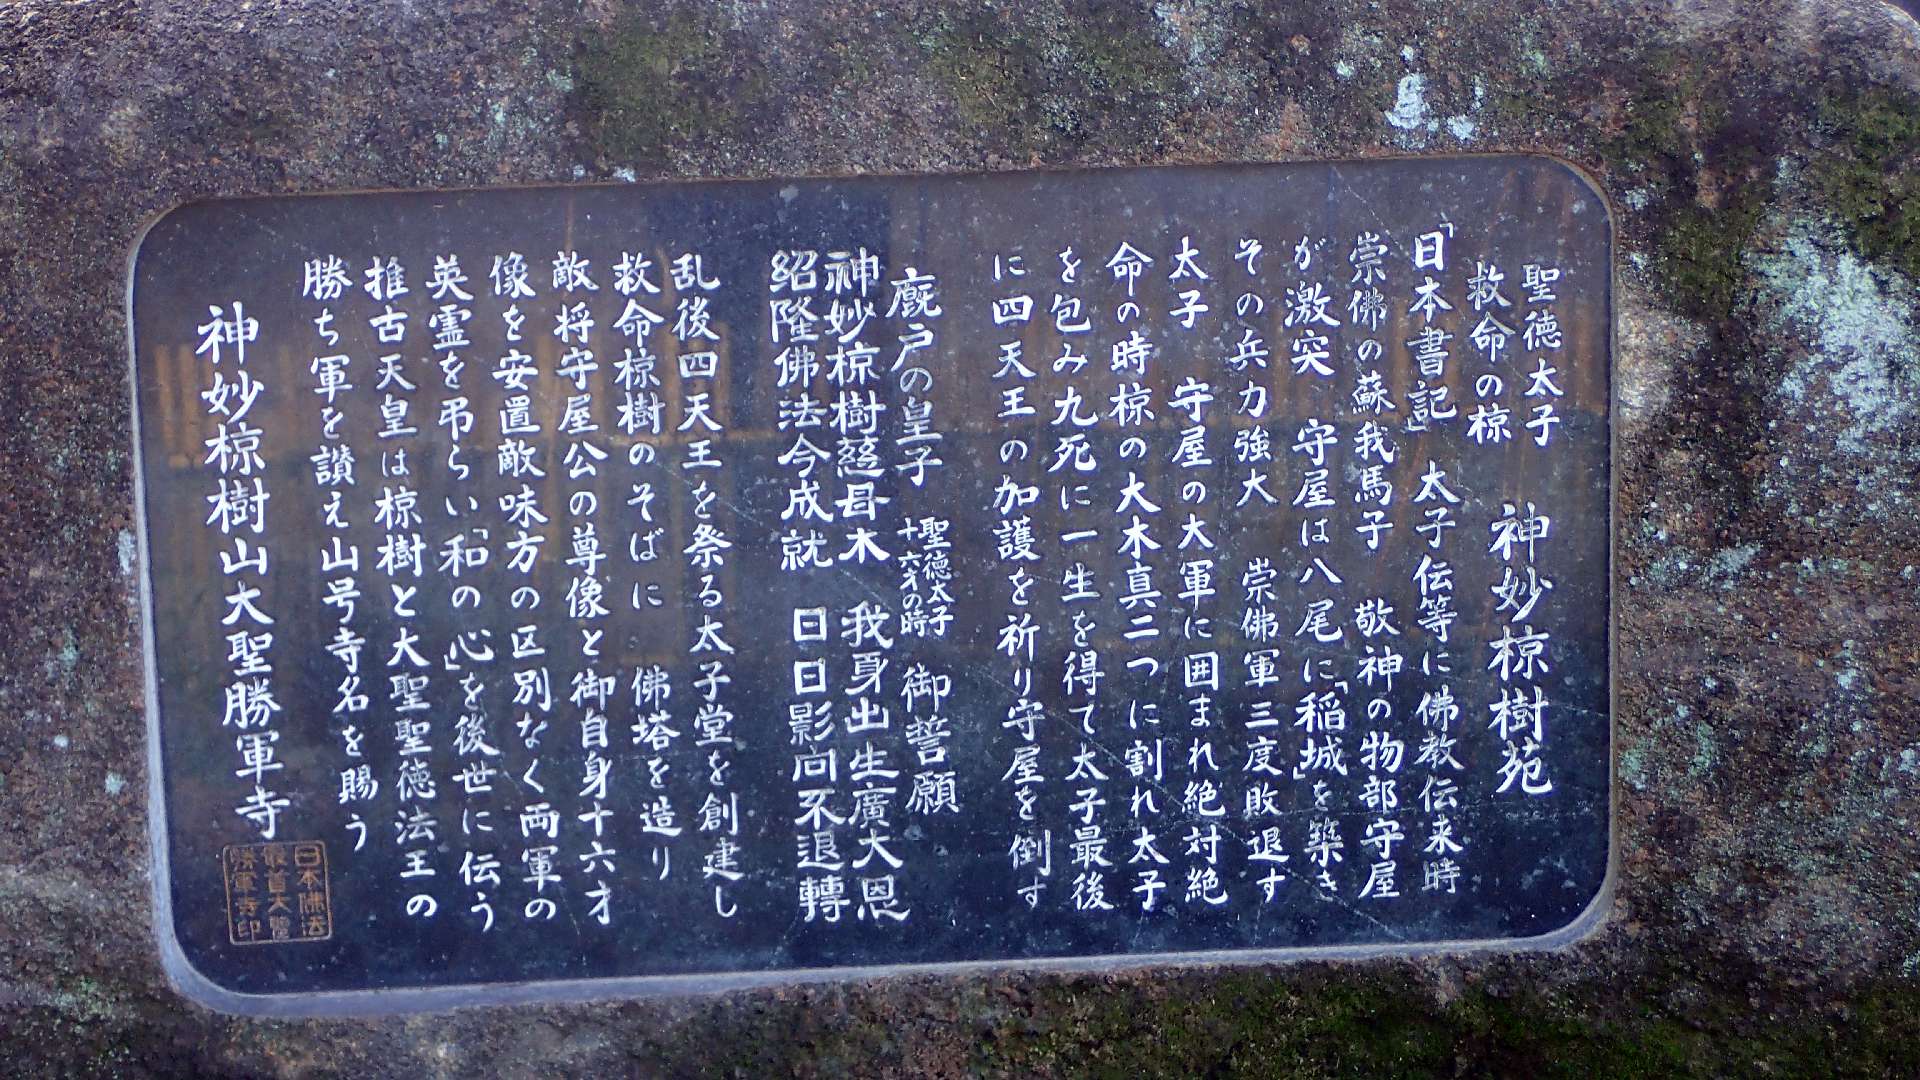 聖徳太子
救命の椋
神妙椋樹苑
「日本書記」 太子伝等に佛教伝来時
崇佛の蘇我馬子 敬神の物部守屋
が激突 守屋は八尾に「稲城」を築き
その兵力強大 崇佛軍三度敗退す
太子 守屋の大軍に囲まれ絶対絶
命の時椋の大木真二つに割れ太子
を包み九死に一生を得て太子最後
に四天王の加護を祈り守屋を倒す
廐戸の皇子 聖徳太子十六才の時 御誓願
神妙椋樹慈母木 我身出生廣大恩
紹隆佛法今成就 日日影向不退轉
乱後四天王を祭る太子堂を創建し
救命椋樹のそばに 佛塔を造り
敵将守屋公の尊像と御自身十六才
像を安置敵味方の区別なく両軍の
英霊を弔らい「和の心」を後世に伝う
推古天皇は椋樹と大聖聖徳法王の
勝ち軍を讃え山号寺名を賜う
神妙椋樹山大聖勝軍寺
日本佛法
最首大聖
勝軍寺印